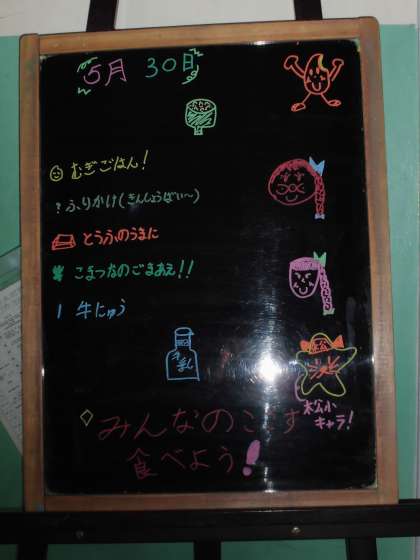 5月 30日
むぎごはん!
ふりかけ(きんしょうばい~)
とうふのうまに
こまつなのごまあえ!!
牛にゅう
牛乳
松小
キャラ!
みんなのこさず
食べよう!